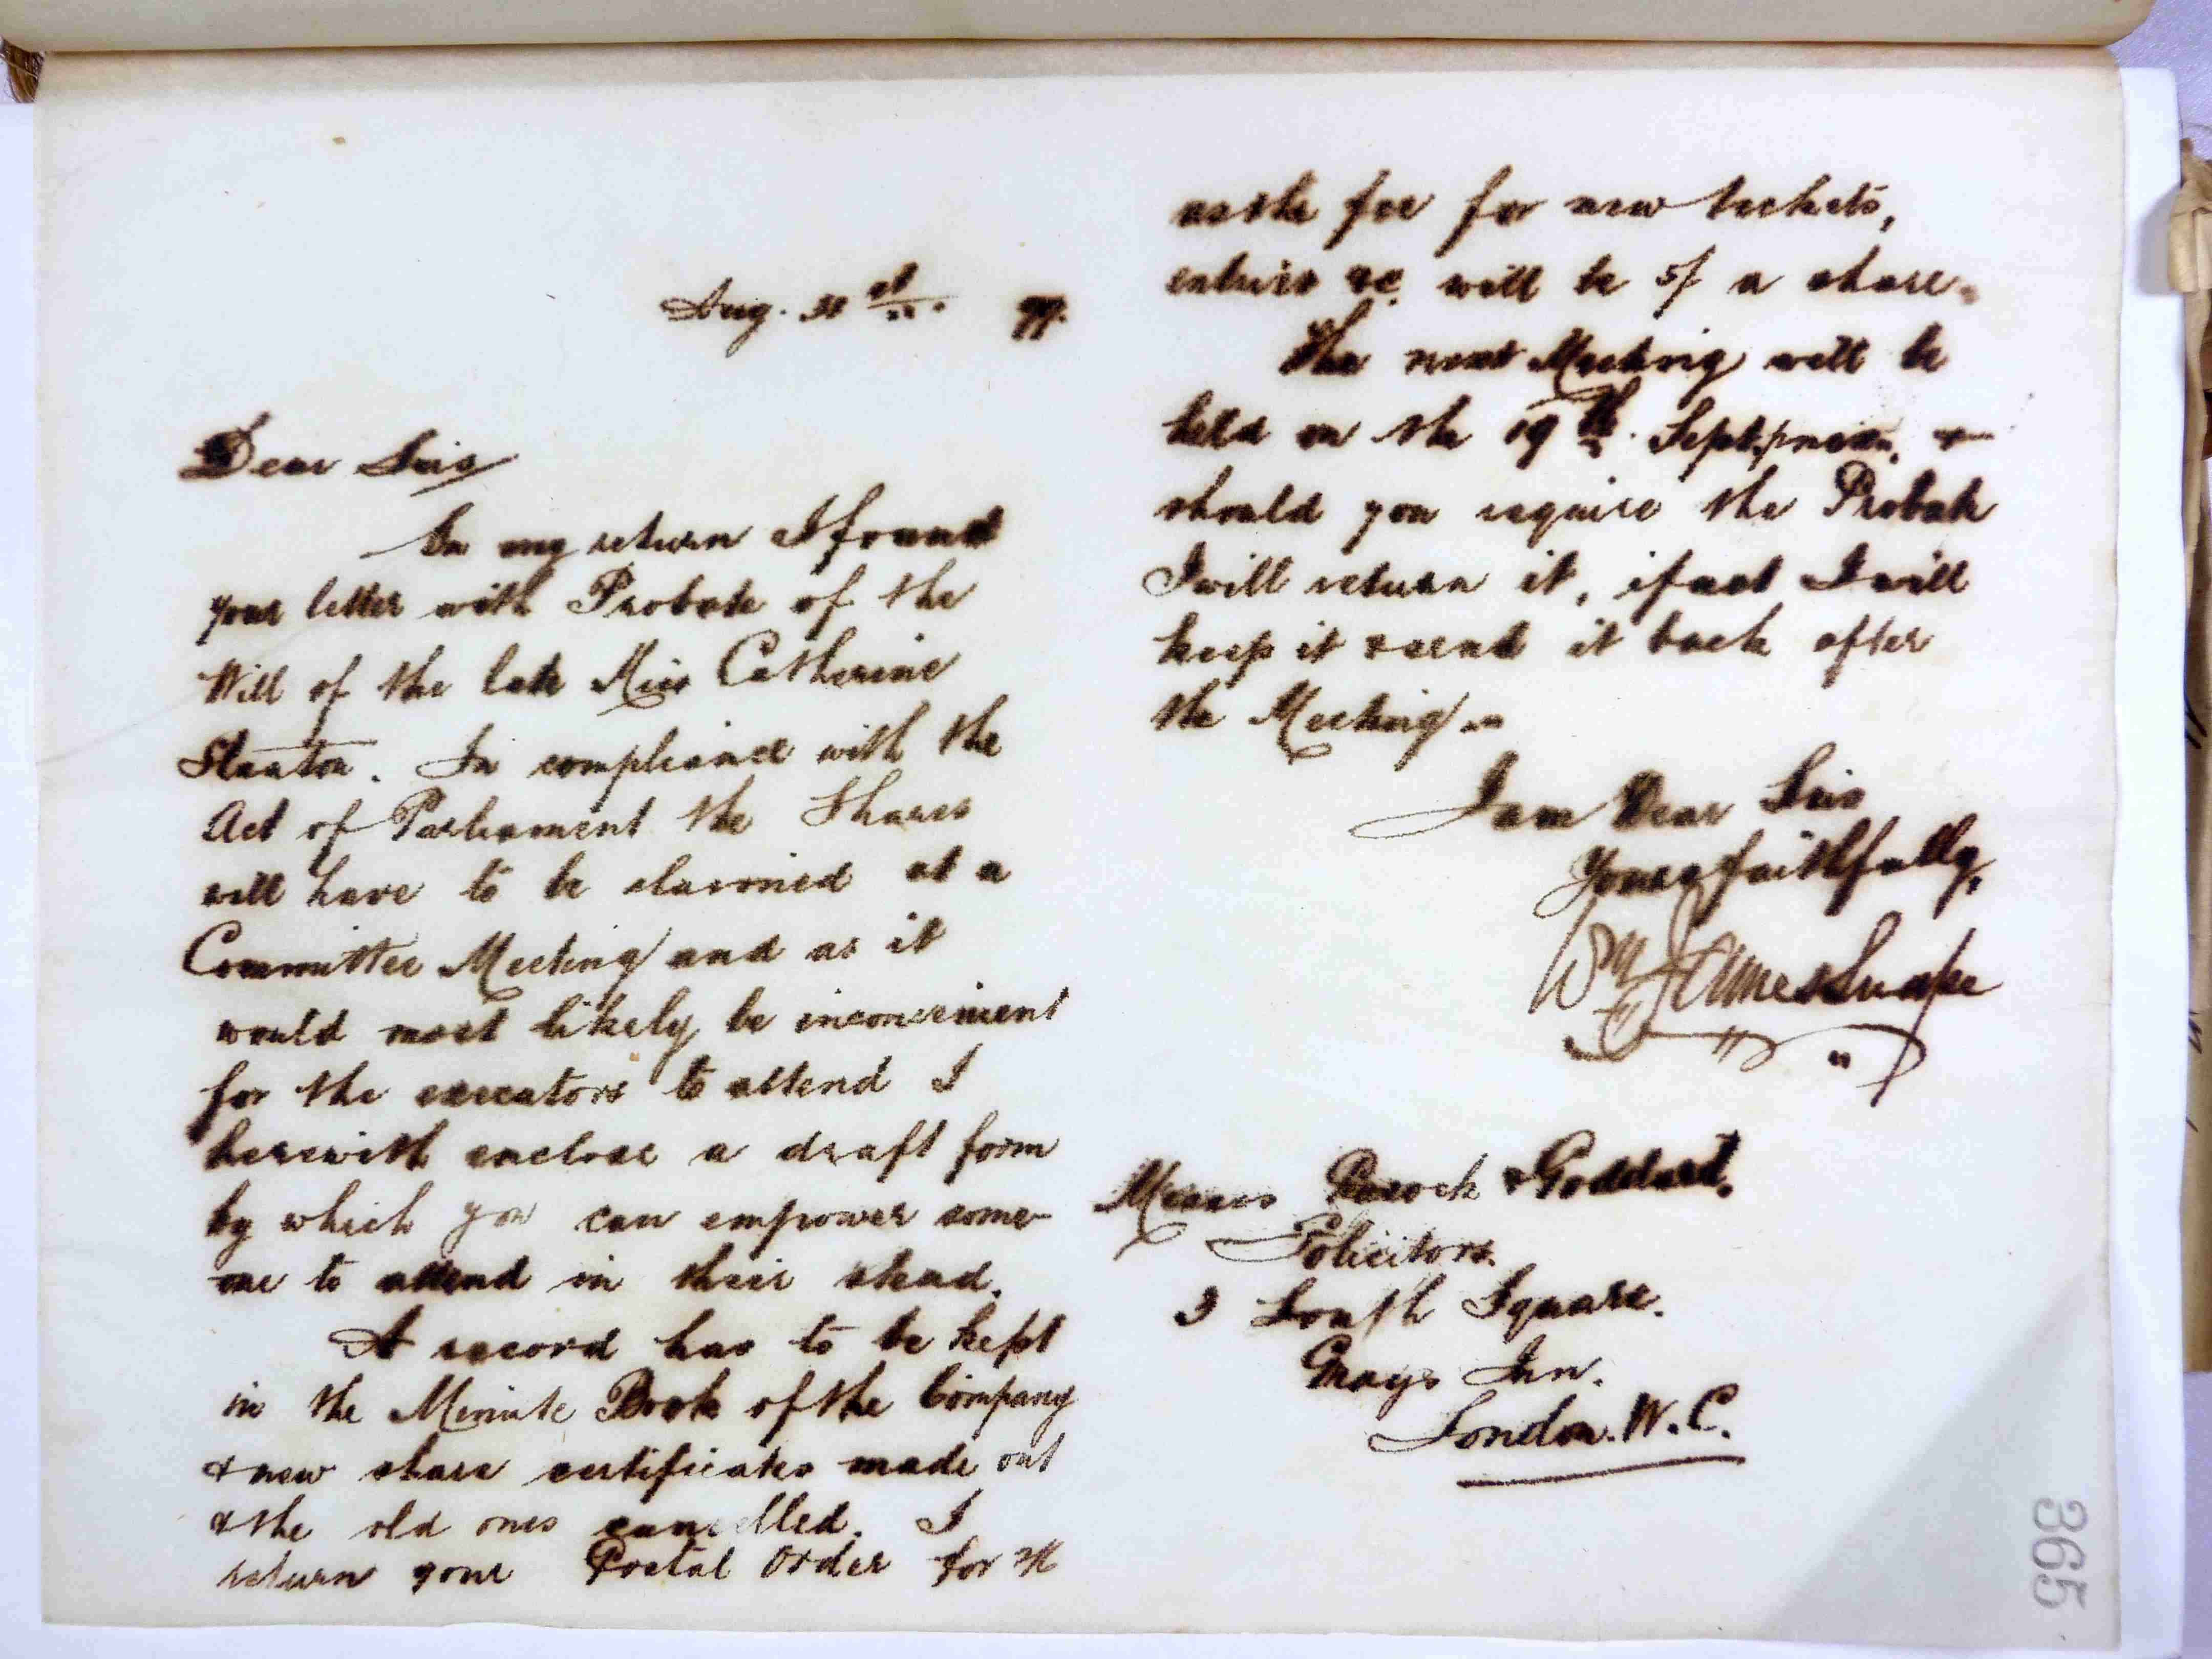 Aug. 31st 99.
Dear Sirs
On my return I found
your letter with Probate of the
Will of the late Miss Catherine
Staunton. In compliance with the
Act of Parliament the Shares
will have to be claimed at a
Committee Meeting and as it
would most likely be inconvenient
for the executors to attend I
herewith enclose a draft form
by which you can empower some-
one to attend in their stead.
A record has to be kept
in the Minute Book of the Company
& new share certificates made out
& the old ones cancelled. I
return your Postal Order for
as the fee for new tickets,
entries &c. will be 5/ a share.
The next Meeting will be
held on the 19th Sept. prox.,
should you require the Probate
I will return it, if not I will
keep it & send it back after
the Meeting.
I am Dear Sirs
Yours faithfully,
Wm James Snape
Messrs Peacock & Goddard.
Solicitors.
3 South Square.
Grays Inn.
London. W.C.
365